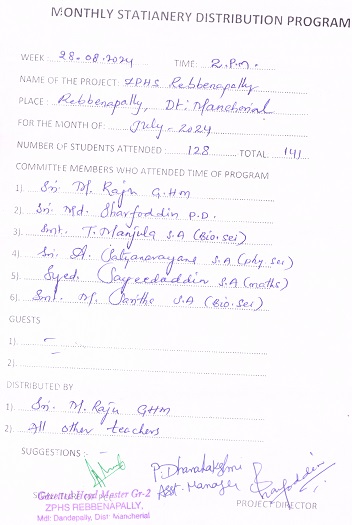 MONTHLY STATIANERY DISTRIBUTION PROGRAM
WEEK 28-08-2024 TIME: 2.P.M.
NAME OF THE PROJECT: ZPHS Rebbenapally
PLACE: Rebbenapally, Dt: Mancherial
FOR THE MONTH OF: July-2024
NUMBER OF STUDENTS ATTENDED: 128 TOTAL 141
COMMITTEE MEMBERS WHO ATTENDED TIME OF PROGRAM
1) Sri. M. Raju G.HM
2) Sri. Md. Sharfoddin P.D.
3) Smt. T. Manjula S.A (Bio.sci)
4) Sri. A. Satyanarayana S.A (phy.sci)
5) Syed. Sayeedaddin S.A (maths)
6) Smt. M. S.A (Bio.sci)
GUESTS
1) -
2) -
DISTRIBUTED BY
1) Sri. M. Raju GHM
2) All other teachers
SUGGESTIONS :-
P. Dhanalakshmi
Asst. Manager
Sharfoddin
Gazetted Head Master Gr-2
ZPHS REBBENAPALLY,
Mdl: Dandepally, Dist: Mancherial
PROJECT DIRECTOR